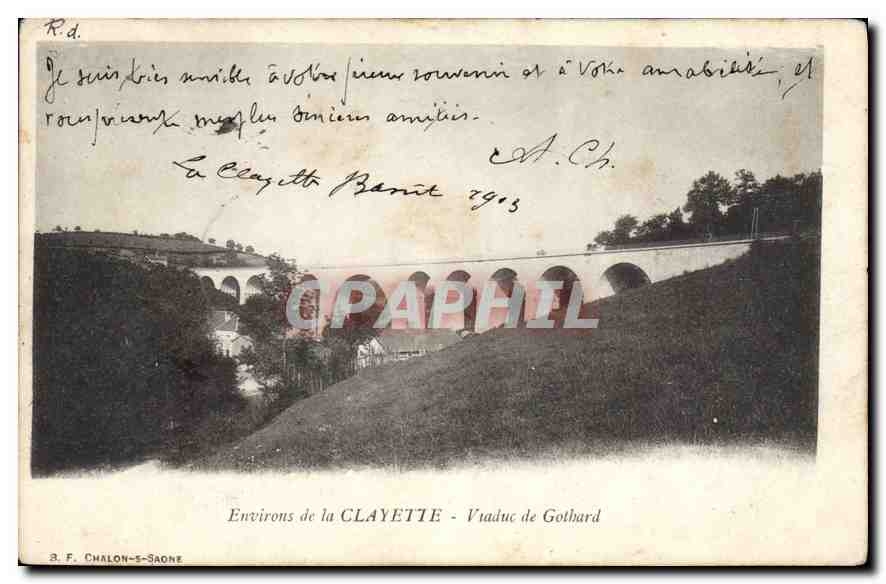 R. d.
Je suis très sensible à votre pieux souvenir et à votre amabilité, et
vous présente mes plus sincères amitiés.
A. Ch.
La Clayette 1903
CPAPHIL
Environs de la CLAYETTE - Viaduc de Gothard
B. F. CHALON-S-SAONE